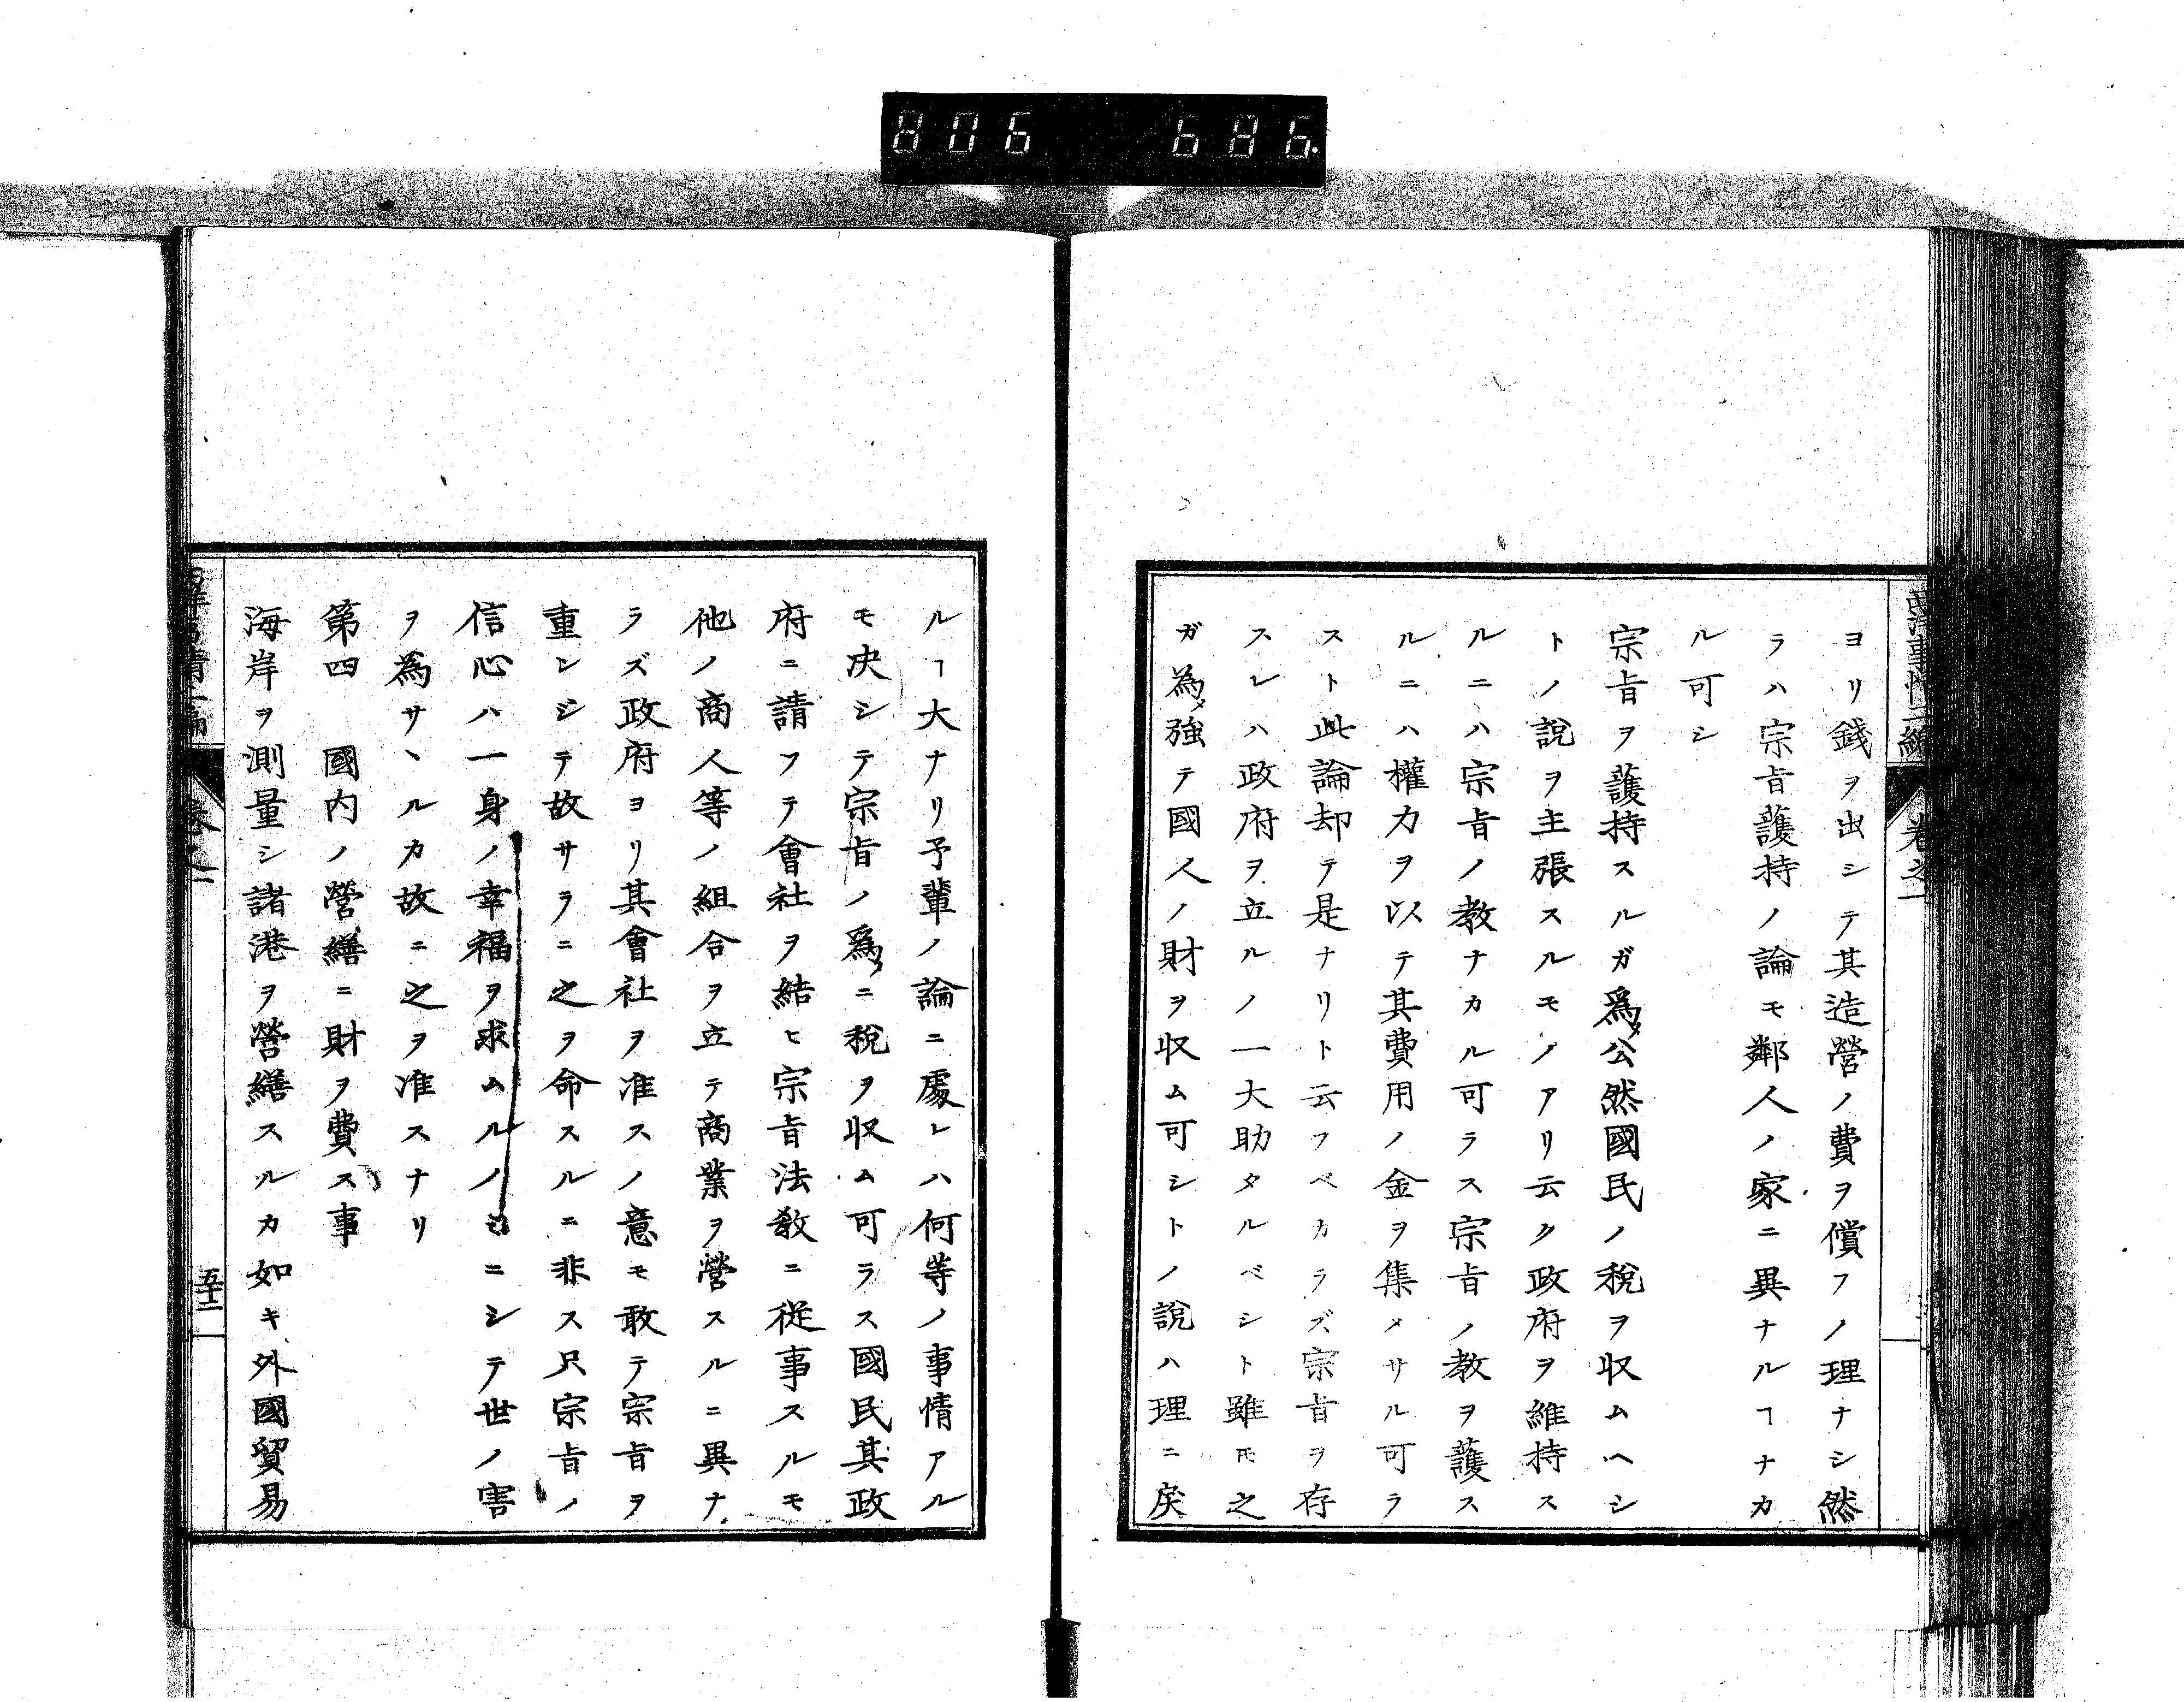 806 686.
西洋事情二編 卷之一
ヨリ錢ヲ出シテ其造營ノ費ヲ償フノ理ナシ然
ラハ宗旨護持ノ論モ鄰人ノ家ニ異ナルヿナカ
ル可シ
宗旨ヲ護持スルガ爲メ公然國民ノ稅ヲ収ムヘシ
トノ說ヲ主張スルモノアリ云ク政府ヲ維持ス
ルニハ宗旨ノ教ナカル可ラス宗旨ノ教ヲ護ス
ルニハ權力ヲ以テ其費用ノ金ヲ集メサル可ラ
スト此論却テ是ナリト云フベカラズ宗旨ヲ存
スレハ政府ヲ立ルノ一大助タルベシト雖𪜈之
ガ為メ強テ國人ノ財ヲ収ム可シトノ說ハ理ニ戾
ルヿ大ナリ予輩ノ論ニ處レハ何等ノ事情アル
モ决シテ宗旨ノ爲メニ稅ヲ収ム可ラス國民其政
府ニ請フテ會社ヲ結ヒ宗旨法教ニ從事スルモ
他ノ商人等ノ組合ヲ立テ商業ヲ營スルニ異ナ
ラズ政府ヨリ其會社ヲ准スノ意モ敢テ宗旨ヲ
重ンジテ故サラニ之ヲ命スルニ非ス只宗旨ノ
信心ハ一身ノ幸福ヲ求ムルノミニシテ世ノ害
ヲ為サヽルカ故ニ之ヲ准スナリ
第四 國内ノ營繕ニ財ヲ費ス事
海岸ヲ測量シ諸港ヲ營繕スルカ如キ外國貿易
西洋事情二編 卷之一